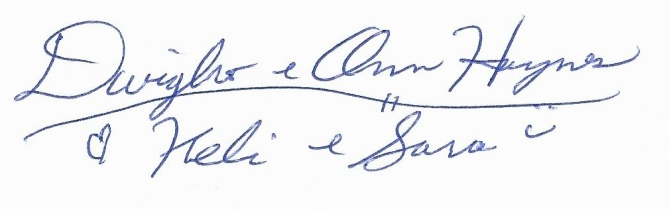 Dwight e Ann Haynes
Heli e Sara